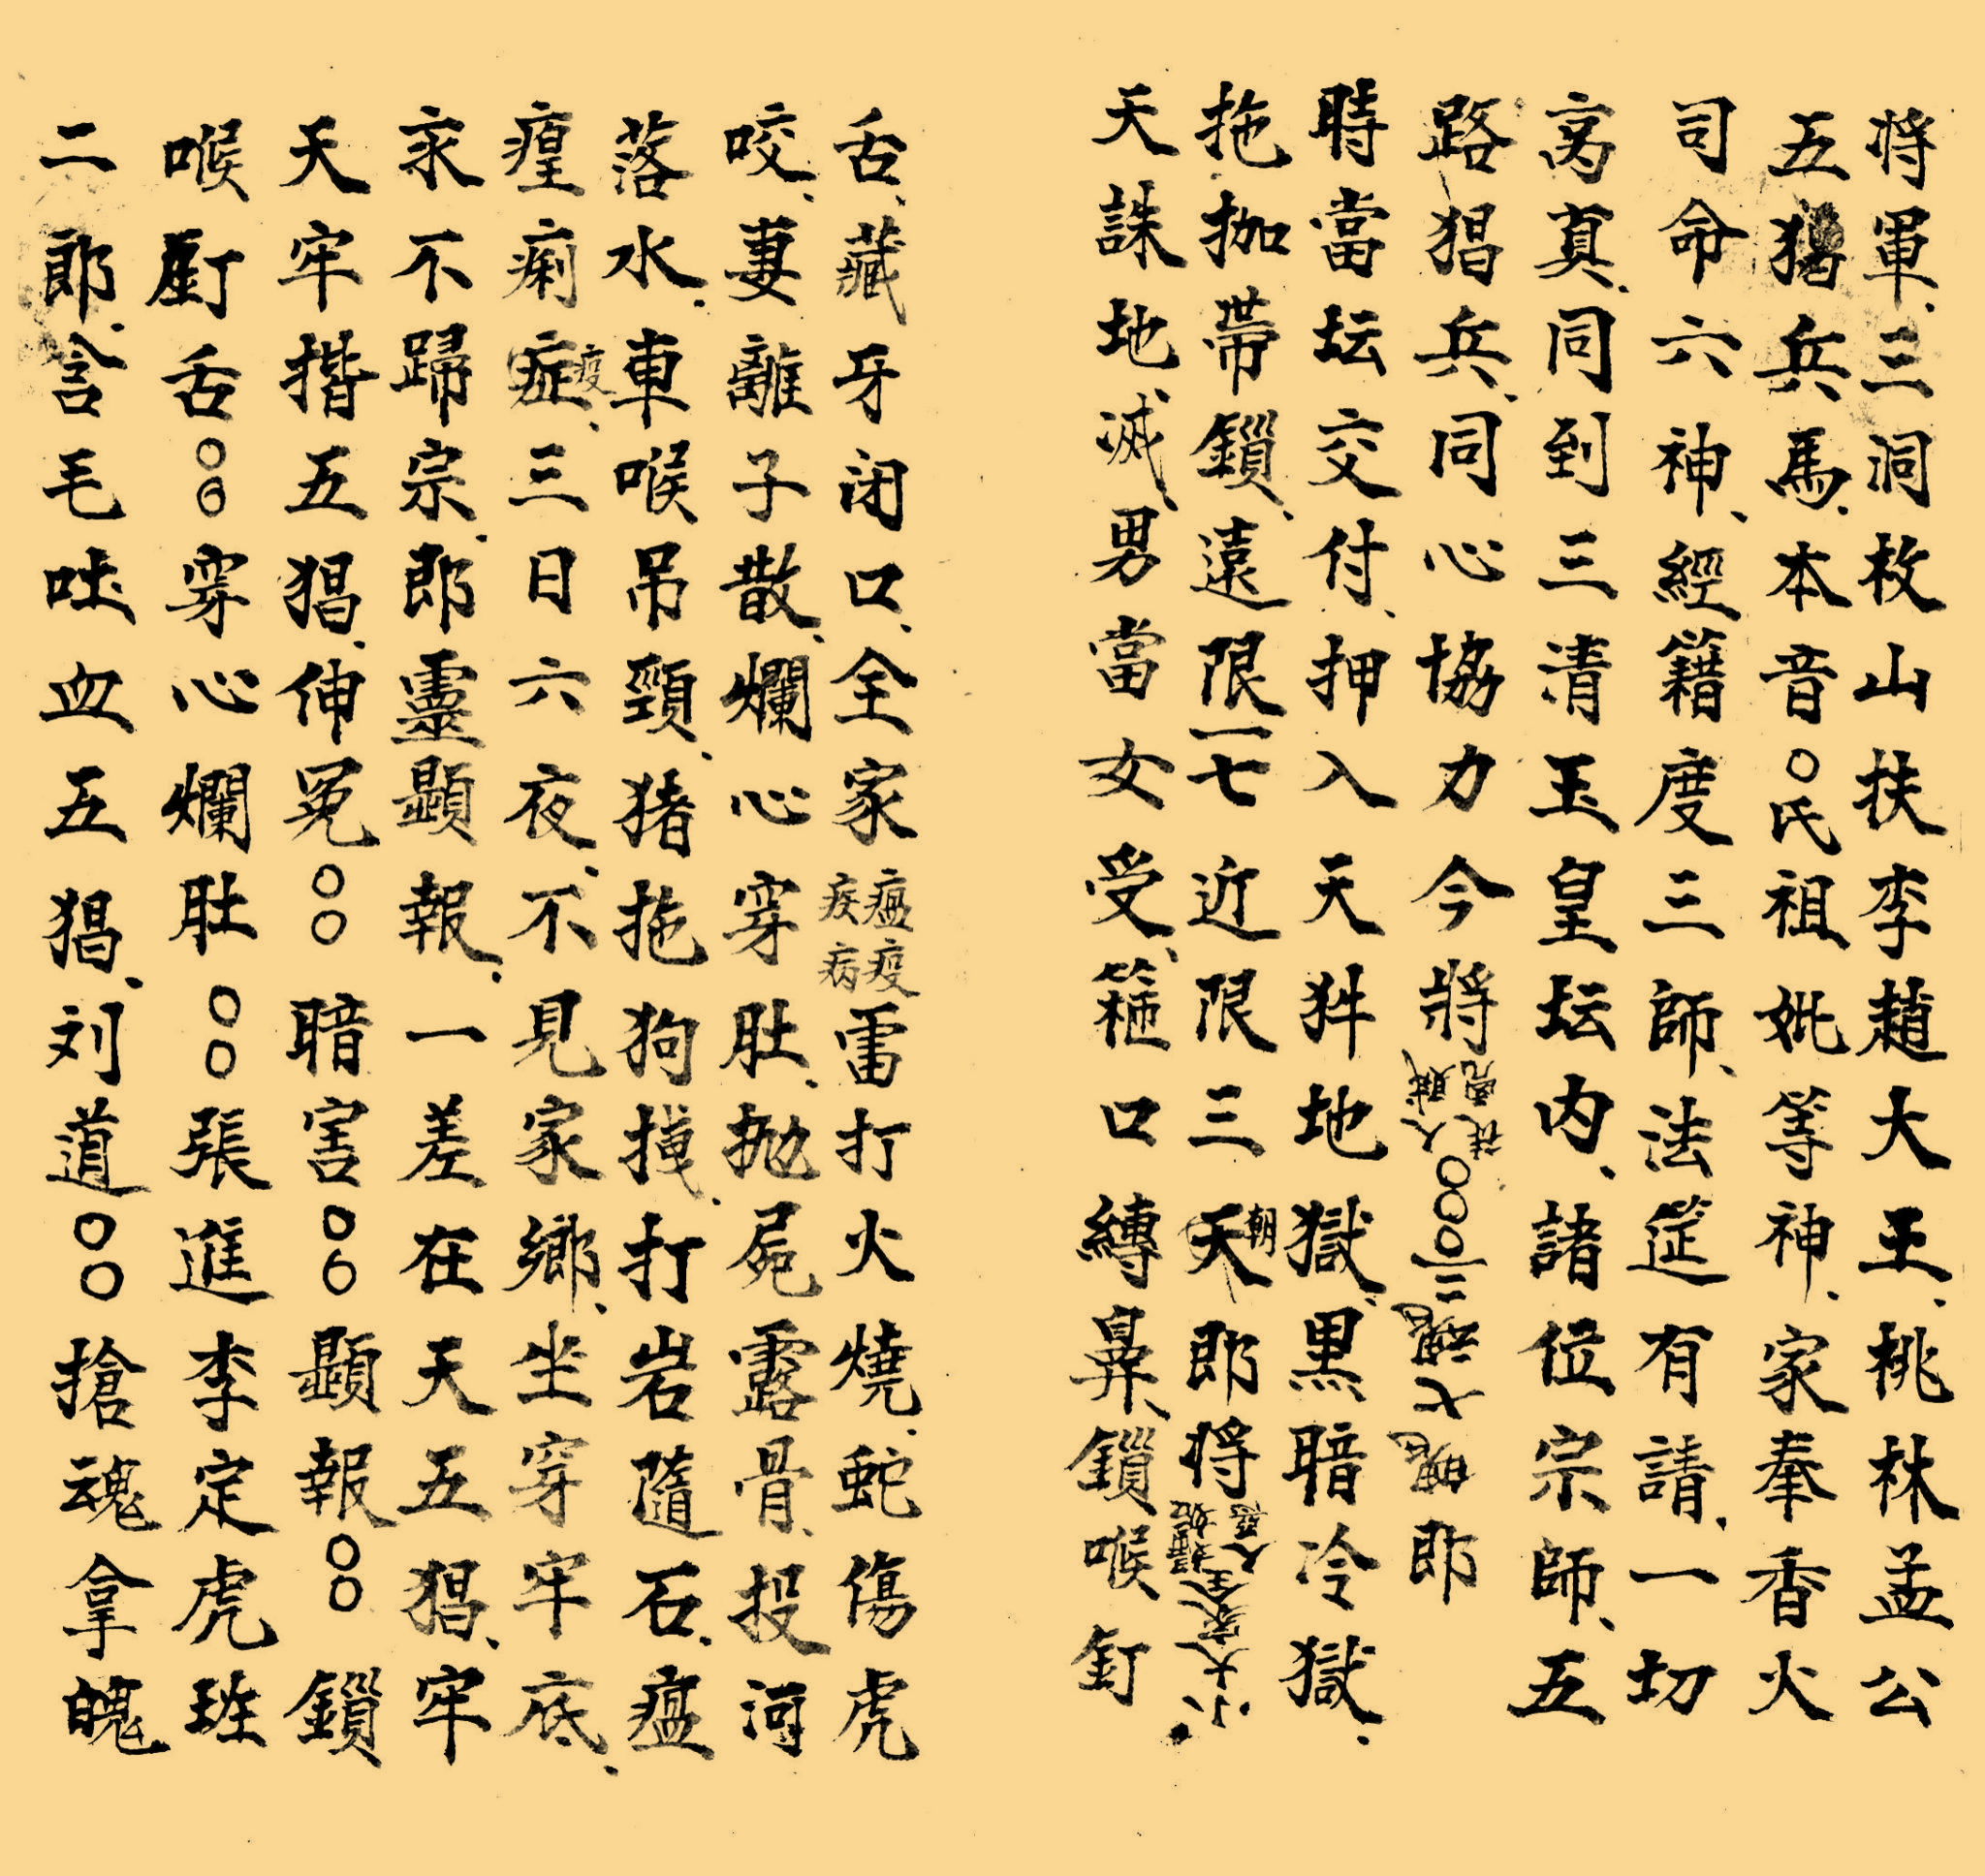 将軍三洞枚山扶李趙大王桃林孟公
五猖兵馬本音〇氏祖妣等神家奉香火
司命六神經籍度三師法筵有請一切
高真同到三清玉皇坛内諸位宗師五
路猖兵同心協力今將〇〇〇三魂七魄即
時當坛交付押入天牪地獄黒暗冷獄
拖枷帶鎖遠限一七近限三天朝即将大小
天誅地滅男當女受箍口縛鼻鎖喉釘
舌藏牙闭口全家瘟疫疾病雷打火燒蛇傷虎
咬妻離子散爛心穿肚抛屍露骨投河
落水車喉吊頸猪拖狗摸打岩隨石瘟
瘟痢症疫三日六夜不見家鄉坐穿牢底
永不歸宗郎靈顯報一差在天五猖牢
天牢揩五猖伸冤〇〇暗害〇〇顯報〇〇鎖
喉釘舌〇〇穿心爛肚〇〇張進李定虎班
二郎含毛吐血五猖刘道〇〇搶魂拿魄